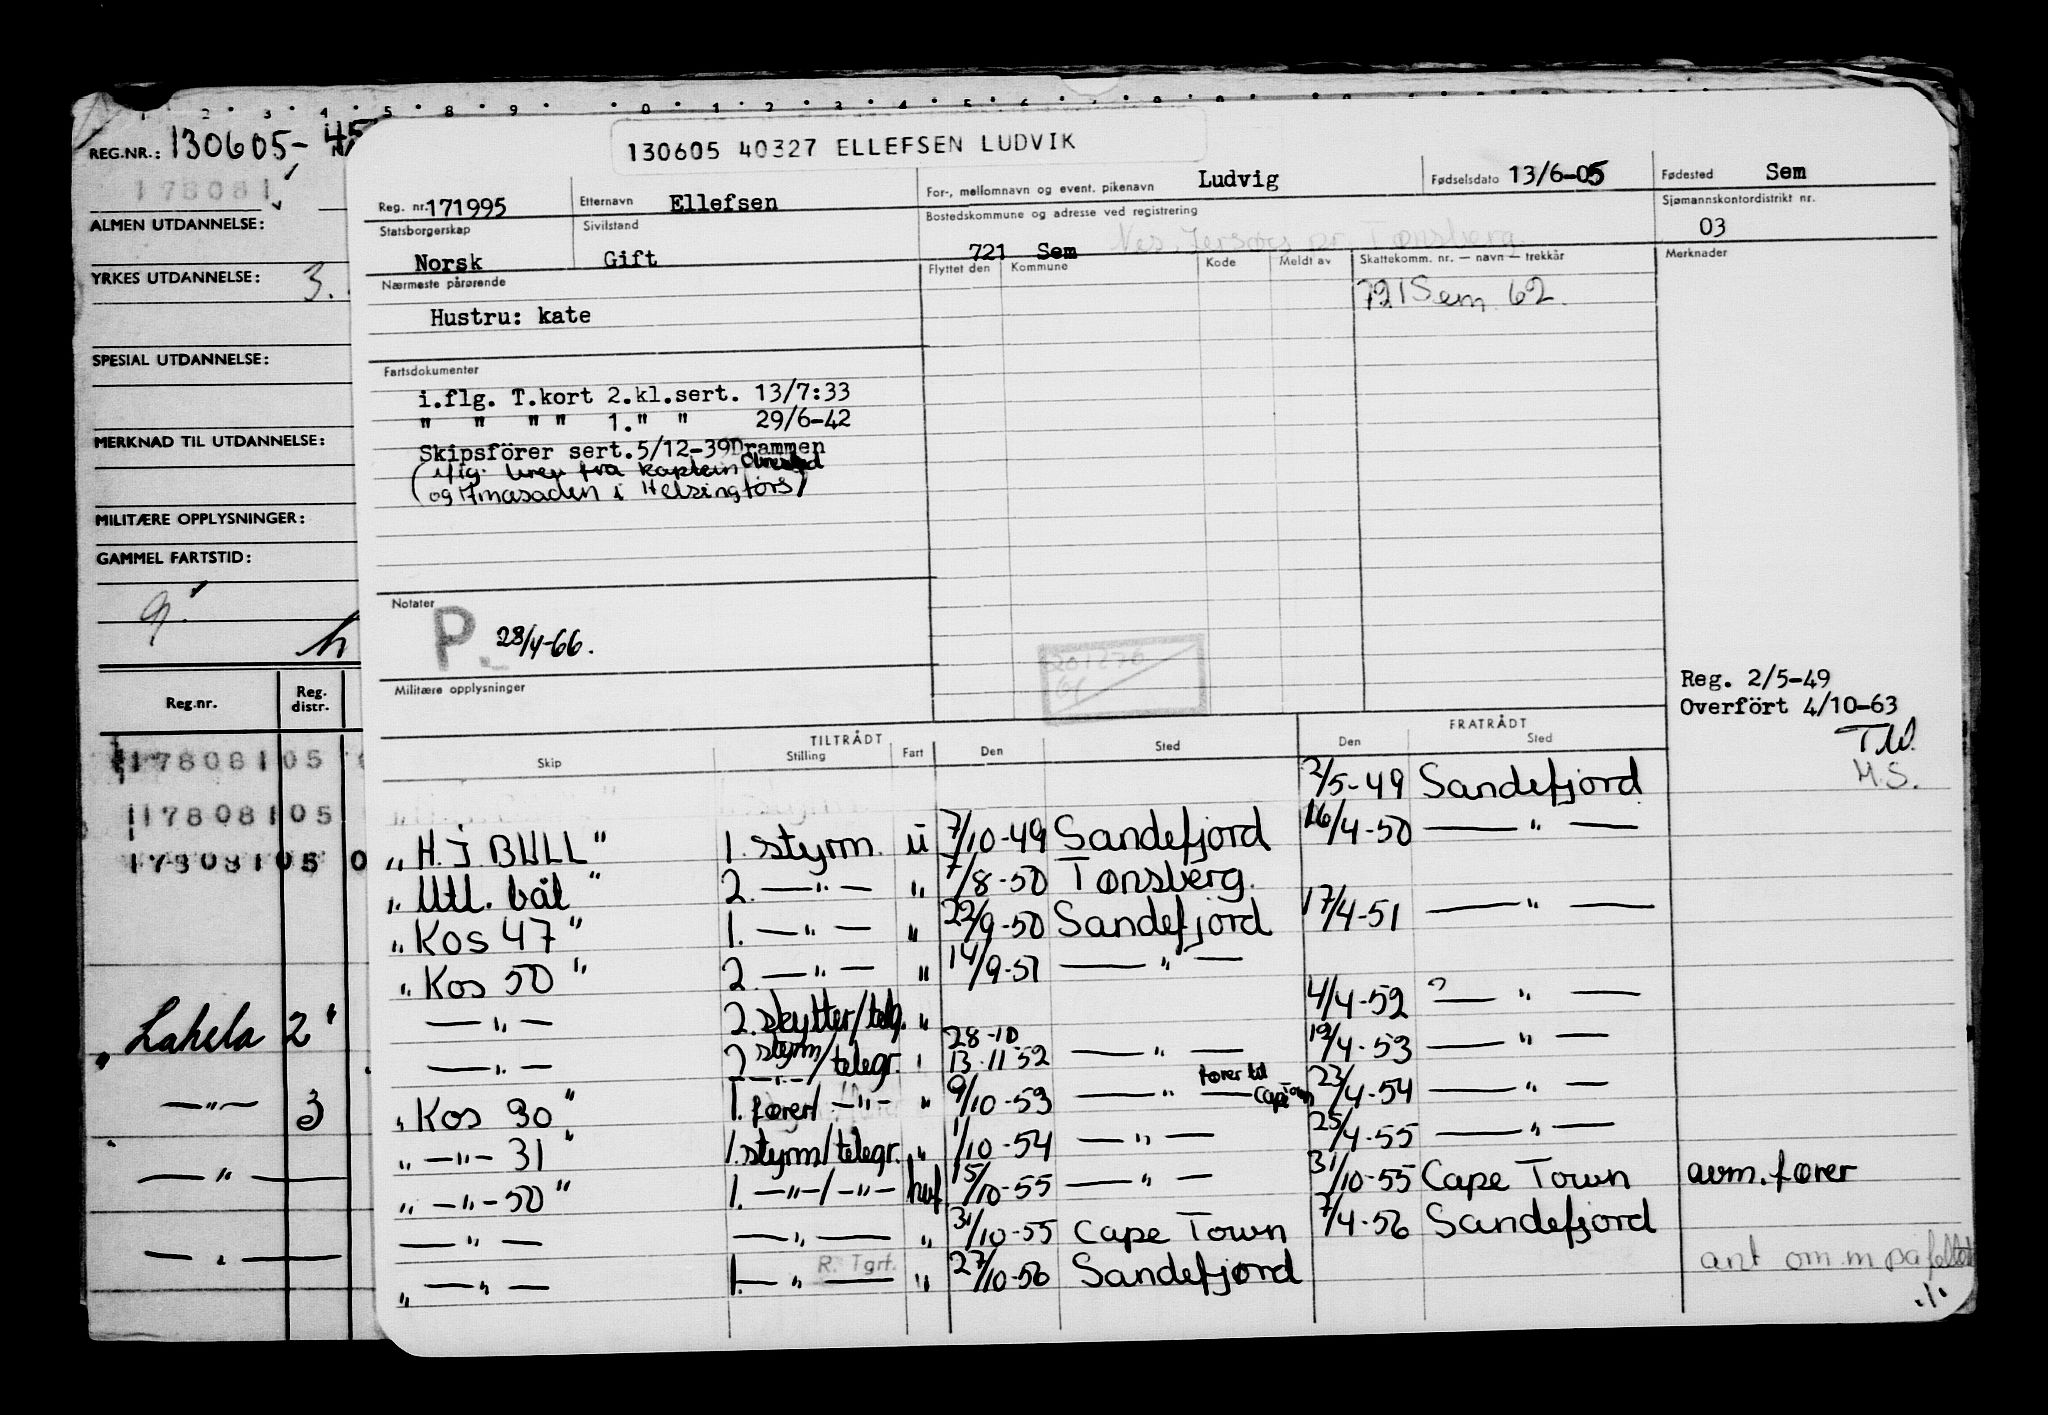 1 2 3 4 5 8 9 0 1 2 3 4 5 6 7 8 9
REG.NR.: 130605,- 45
178081
ALMEN UTDANNELSE:
YRKES UTDANNELSE: 3.
SPESIAL UTDANNELSE:
MERKNAD TIL UTDANNELSE:
MILITÆRE OPPLYSNINGER:
GAMMEL FARTSTID:
Reg.nr. Reg. distr.
17808105
17808105
17808105 0
" Lahela 2"
—"— 3
—"—
—"—
130605 40327 ELLEFSEN LUDVIK
Reg. nr. 171995 Etternavn Ellefsen For-, mellomnavn og event. pikenavn Ludvig Fødselsdato 13/6-05 Fødested Sem
Statsborgerskap Norsk Sivilstand Gift Bostedskommune og adresse ved registrering 721 Sem Sjømannskontordistrikt nr. 03
Nes, Jersøy pr. Tønsberg
Nærmeste pårørende Flyttet den Kommune Kode Meldt av Skattekomm. nr. — navn — trekkår Merknader
721 Sem 62.
Hustru: kate
Fartsdokumenter
i.flg. T.kort 2.kl.sert. 13/7:33
" " " " 1." " 29/6-42
Skipsförer sert.5/12-39 Drammen
(iflg. brev fra kaptein
og Amasaden i Helsingfors)
Notater
P. 28/4-66.
Militære opplysninger
Reg. 2/5-49
Overfört 4/10-63
T.W.
H.S.
TILTRÅDT FRATRÅDT
Skip Stilling Fart Den Sted Den Sted
2/5-49 Sandefjord
" H.J BULL" 1. styrm. ü 7/10-49 Sandefjord 16/4-50 —"—
" Utl. båt " 2. —"— " 7/8-50 Tønsberg.
" Kos 47 " 1. —"— " 22/9-50 Sandefjord 17/4-51 —"—
" Kos 50 " 2. —"— " 14/9-51 —"—
—"— 2. skytter/telg. " 4/4-52 ? —"—
—"— 2 styrm/telegr. " 28-10 13-11-52 —"— 19/4-53 —"—
" Kos 30 " 1. fører/ —"— " 9/10-53 —"— fører til Cape Town 23/4-54 —"—
" —"— 31 " 1. styrm/telegr. " 1/10-54 —"— 25/4-55 —"—
" —"— 50 " 1. —"—/—"— hvf 15/10-55 —"— 31/10-55 Cape Town avm. fører
—"— —"— " 31/10-55 Cape Town 7/4-56 Sandefjord
" —"— 1. —"— R. Tgrf. " 27/10-56 Sandefjord ant om.m på feltet
./.